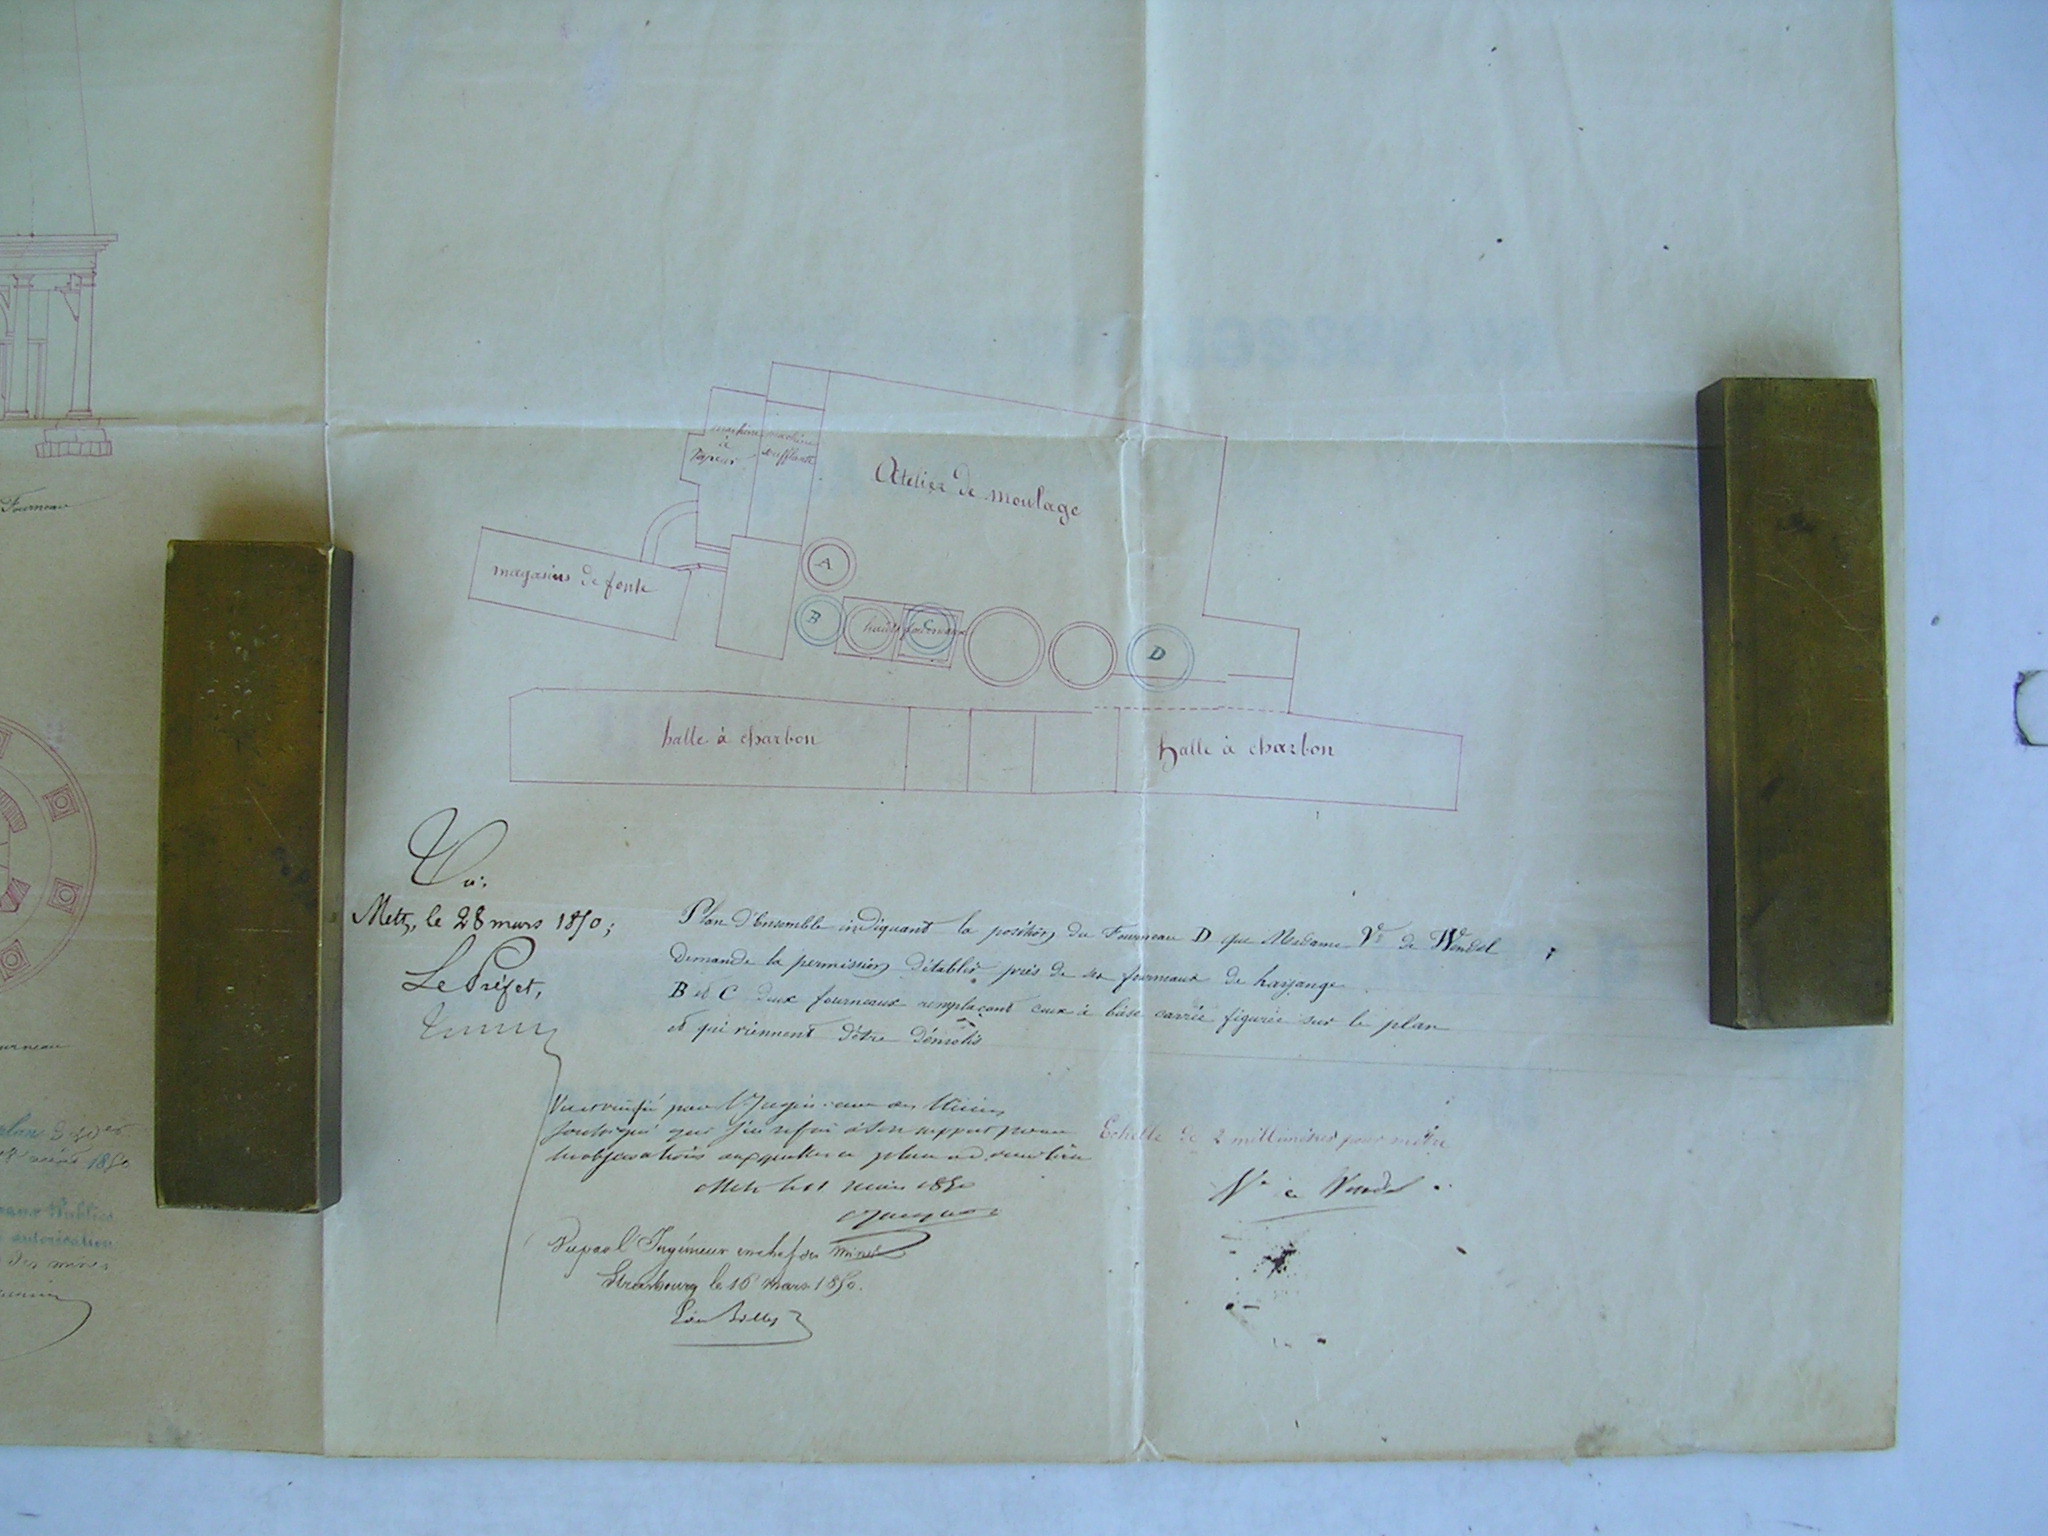 machine
à
vapeur
machine
soufflante
Atelier de moulage
magasins de fonte
A
B
hauts fourneaux
C
D
halle à charbon
halle à charbon
Fourneau
Vu:
Metz, le 28 mars 1850;
Le Préfet,
Plan d'Ensemble indiquant la position du Fourneau D que Madame Ve de Wendel
demande la permission d'établir près de ses fourneaux de hayange
B et C deux fourneaux remplaçant ceux à base carrée figurée sur le plan
et qui viennent d'être démolis
Vu et vérifié par l'Ingénieur des Mines
soussigné que
observations
Metz le 11 mars 1850
Echelle de 2 millimètres pour mètre
Ve de Wendel
Vu par l'Ingénieur en chef des mines
Strasbourg le 16 mars 1850.
plan
1850
Publics
autorisation
des mines